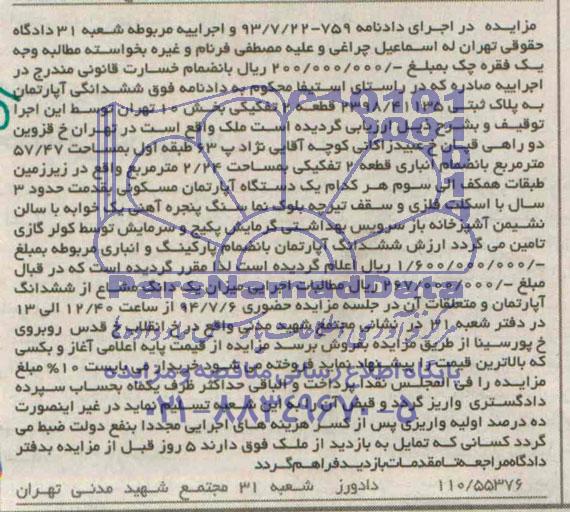 مزایده در اجرای دادنامه ۷۵۹-۹۳/۷/۲۲ و اجراییه مربوطه شعبه ۳۱ دادگاه
حقوقی تهران له اسماعیل چراغی و علیه مصطفی فرنام و غیره بخواسته مطالبه وجه
یک فقره چک بمبلغ -/۲۰۰/۰۰۰/۰۰۰ ریال بانضمام خسارت قانونی مندرج در
اجراییه صادره که در راستای استیفا محکوم به دادنامه فوق ششدانگی آپارتمان
به پلاک ثبتی ۲۳۹۸/۴۱۱۳۵ قطعه ۲ تفکیکی بخش ۱۰ تهران توسط این اجرا
توقیف و بشرح ذیل ارزیابی گردیده است ملک واقع است در تهران خ قزوین
دو راهی قپان خ عبیدزاکانی کوچه آقایی نژاد پ ۶۳ طبقه اول بمساحت ۵۷/۴۷
مترمربع بانضمام انباری قطعه ۲ تفکیکی بمساحت ۲/۲۴ مترمربع واقع در زیرزمین
طبقات همکف الی سوم هر کدام یک دستگاه آپارتمان مسکونی بقدمت حدود ۳
سال با اسکلت فلزی و سقف تیرچه بلوک نما سنگ پنجره آهنی یک خوابه با سالن
نشیمن آشپزخانه باز سرویس بهداشتی گرمایش پکیج و سرمایش توسط کولر گازی
تامین می گردد ارزش ششدانگ آپارتمان بانضمام پارکینگ و انباری مربوطه بمبلغ
-/۱/۶۰۰/۰۰۰/۰۰۰ ریال اعلام گردیده است لذا مقرر گردیده است که در قبال
مبلغ -/۲۶۷/۰۰۰/۰۰۰ ریال مطالبات اجرایی میزان یک دانگ مشاع از ششدانگ
آپارتمان و متعلقات آن در جلسه مزایده حضوری ۹۴/۷/۶ از ساعت ۱۲/۴۰ الی ۱۳
در دفتر شعبه ۳۱ در نشانی مجتمع شهید مدنی واقع در خ انقلاب خ قدس روبروی
خ پورسینا از طریق مزایده بفروش برسد مزایده از قیمت پایه اعلامی آغاز و بکسی
که بالاترین قیمت را پیشنهاد نماید فروخته می شود خریدار می بایست ۱۰٪ مبلغ
مزایده را فی المجلس نقدا پرداخت و الباقی حداکثر ظرف یکماه بحساب سپرده
دادگستری واریز گردد و قبض آن را به این شعبه تسلیم نماید در غیر اینصورت
ده درصد اولیه واریزی پس از کسر هزینه های اجرایی مجددا بنفع دولت ضبط می
گردد کسانی که تمایل به بازدید از ملک فوق دارند ۵ روز قبل از مزایده بدفتر
دادگاه مراجعه تا مقدمات بازدید فراهم گردد
۱۱۰/۵۵۳۷۶ دادورز شعبه ۳۱ مجتمع شهید مدنی تهران
ParsNamadData
پایگاه اطلاع رسانی مناقصه و مزایده
۰۲۱-۸۸۳۴۹۶۷۰-۵